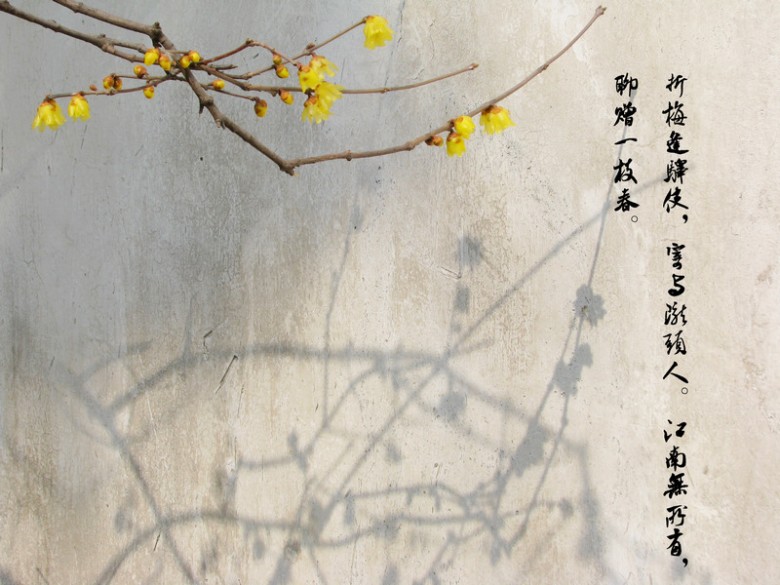 折梅逢驛使，寄与隴頭人。江南無所有，
聊赠一枝春。